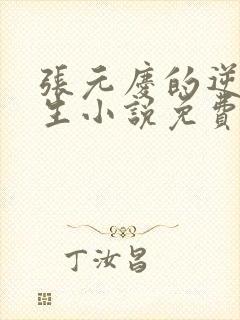 張元慶的逆
生小說免費
丁汝昌